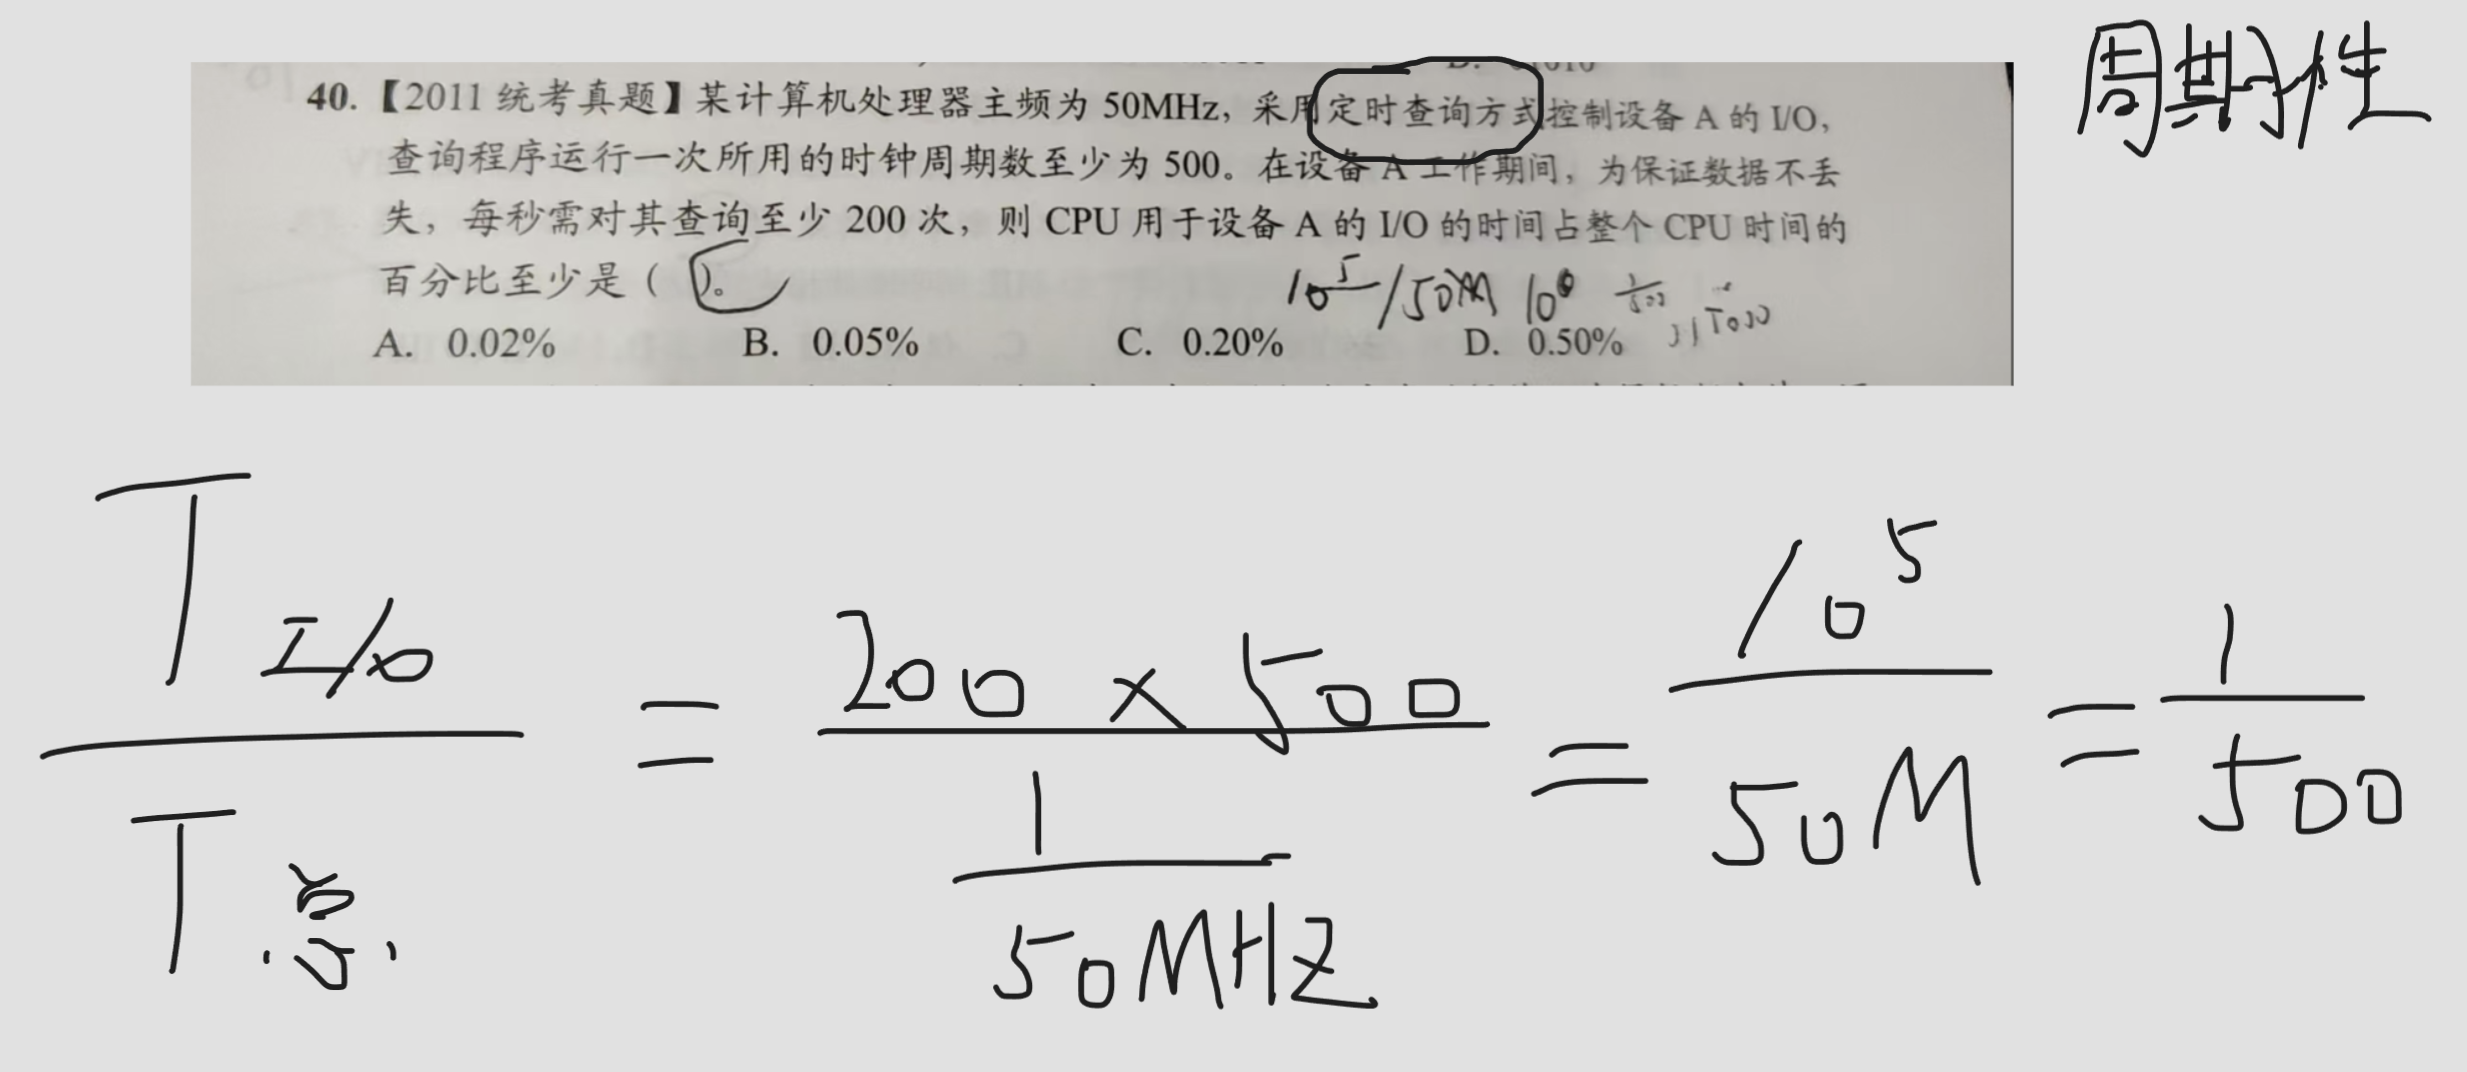 周期性
40.【2011 统考真题】某计算机处理器主频为 50MHz，采用定时查询方式控制设备 A 的 I/O，
查询程序运行一次所用的时钟周期数至少为 500。在设备 A 工作期间，为保证数据不丢
失，每秒需对其查询至少 200 次，则 CPU 用于设备 A 的 I/O 的时间占整个 CPU 时间的
百分比至少是（ ）。
10^5/50M
A. 0.02% B. 0.05% C. 0.20% D. 0.50%
T I/O
T 总
=
200 × 500
1
50MHZ
=
10^5
50M
=
1
500